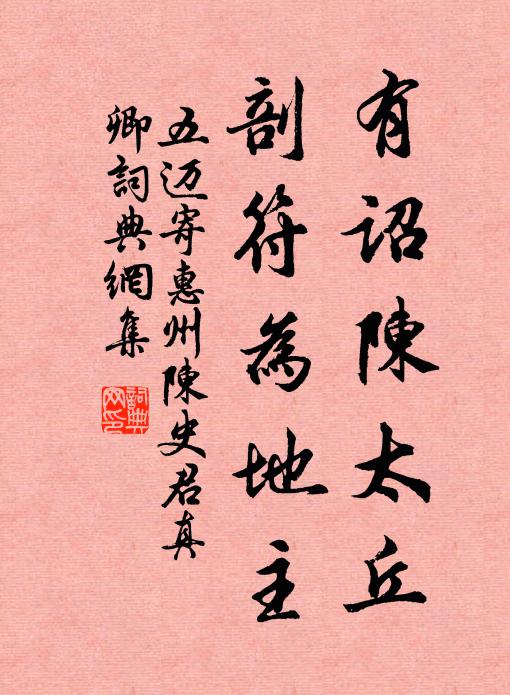 有詔陳太丘
剖符為地主
五迈寄惠州陳史君真
卿詞典網集
詞典
网印